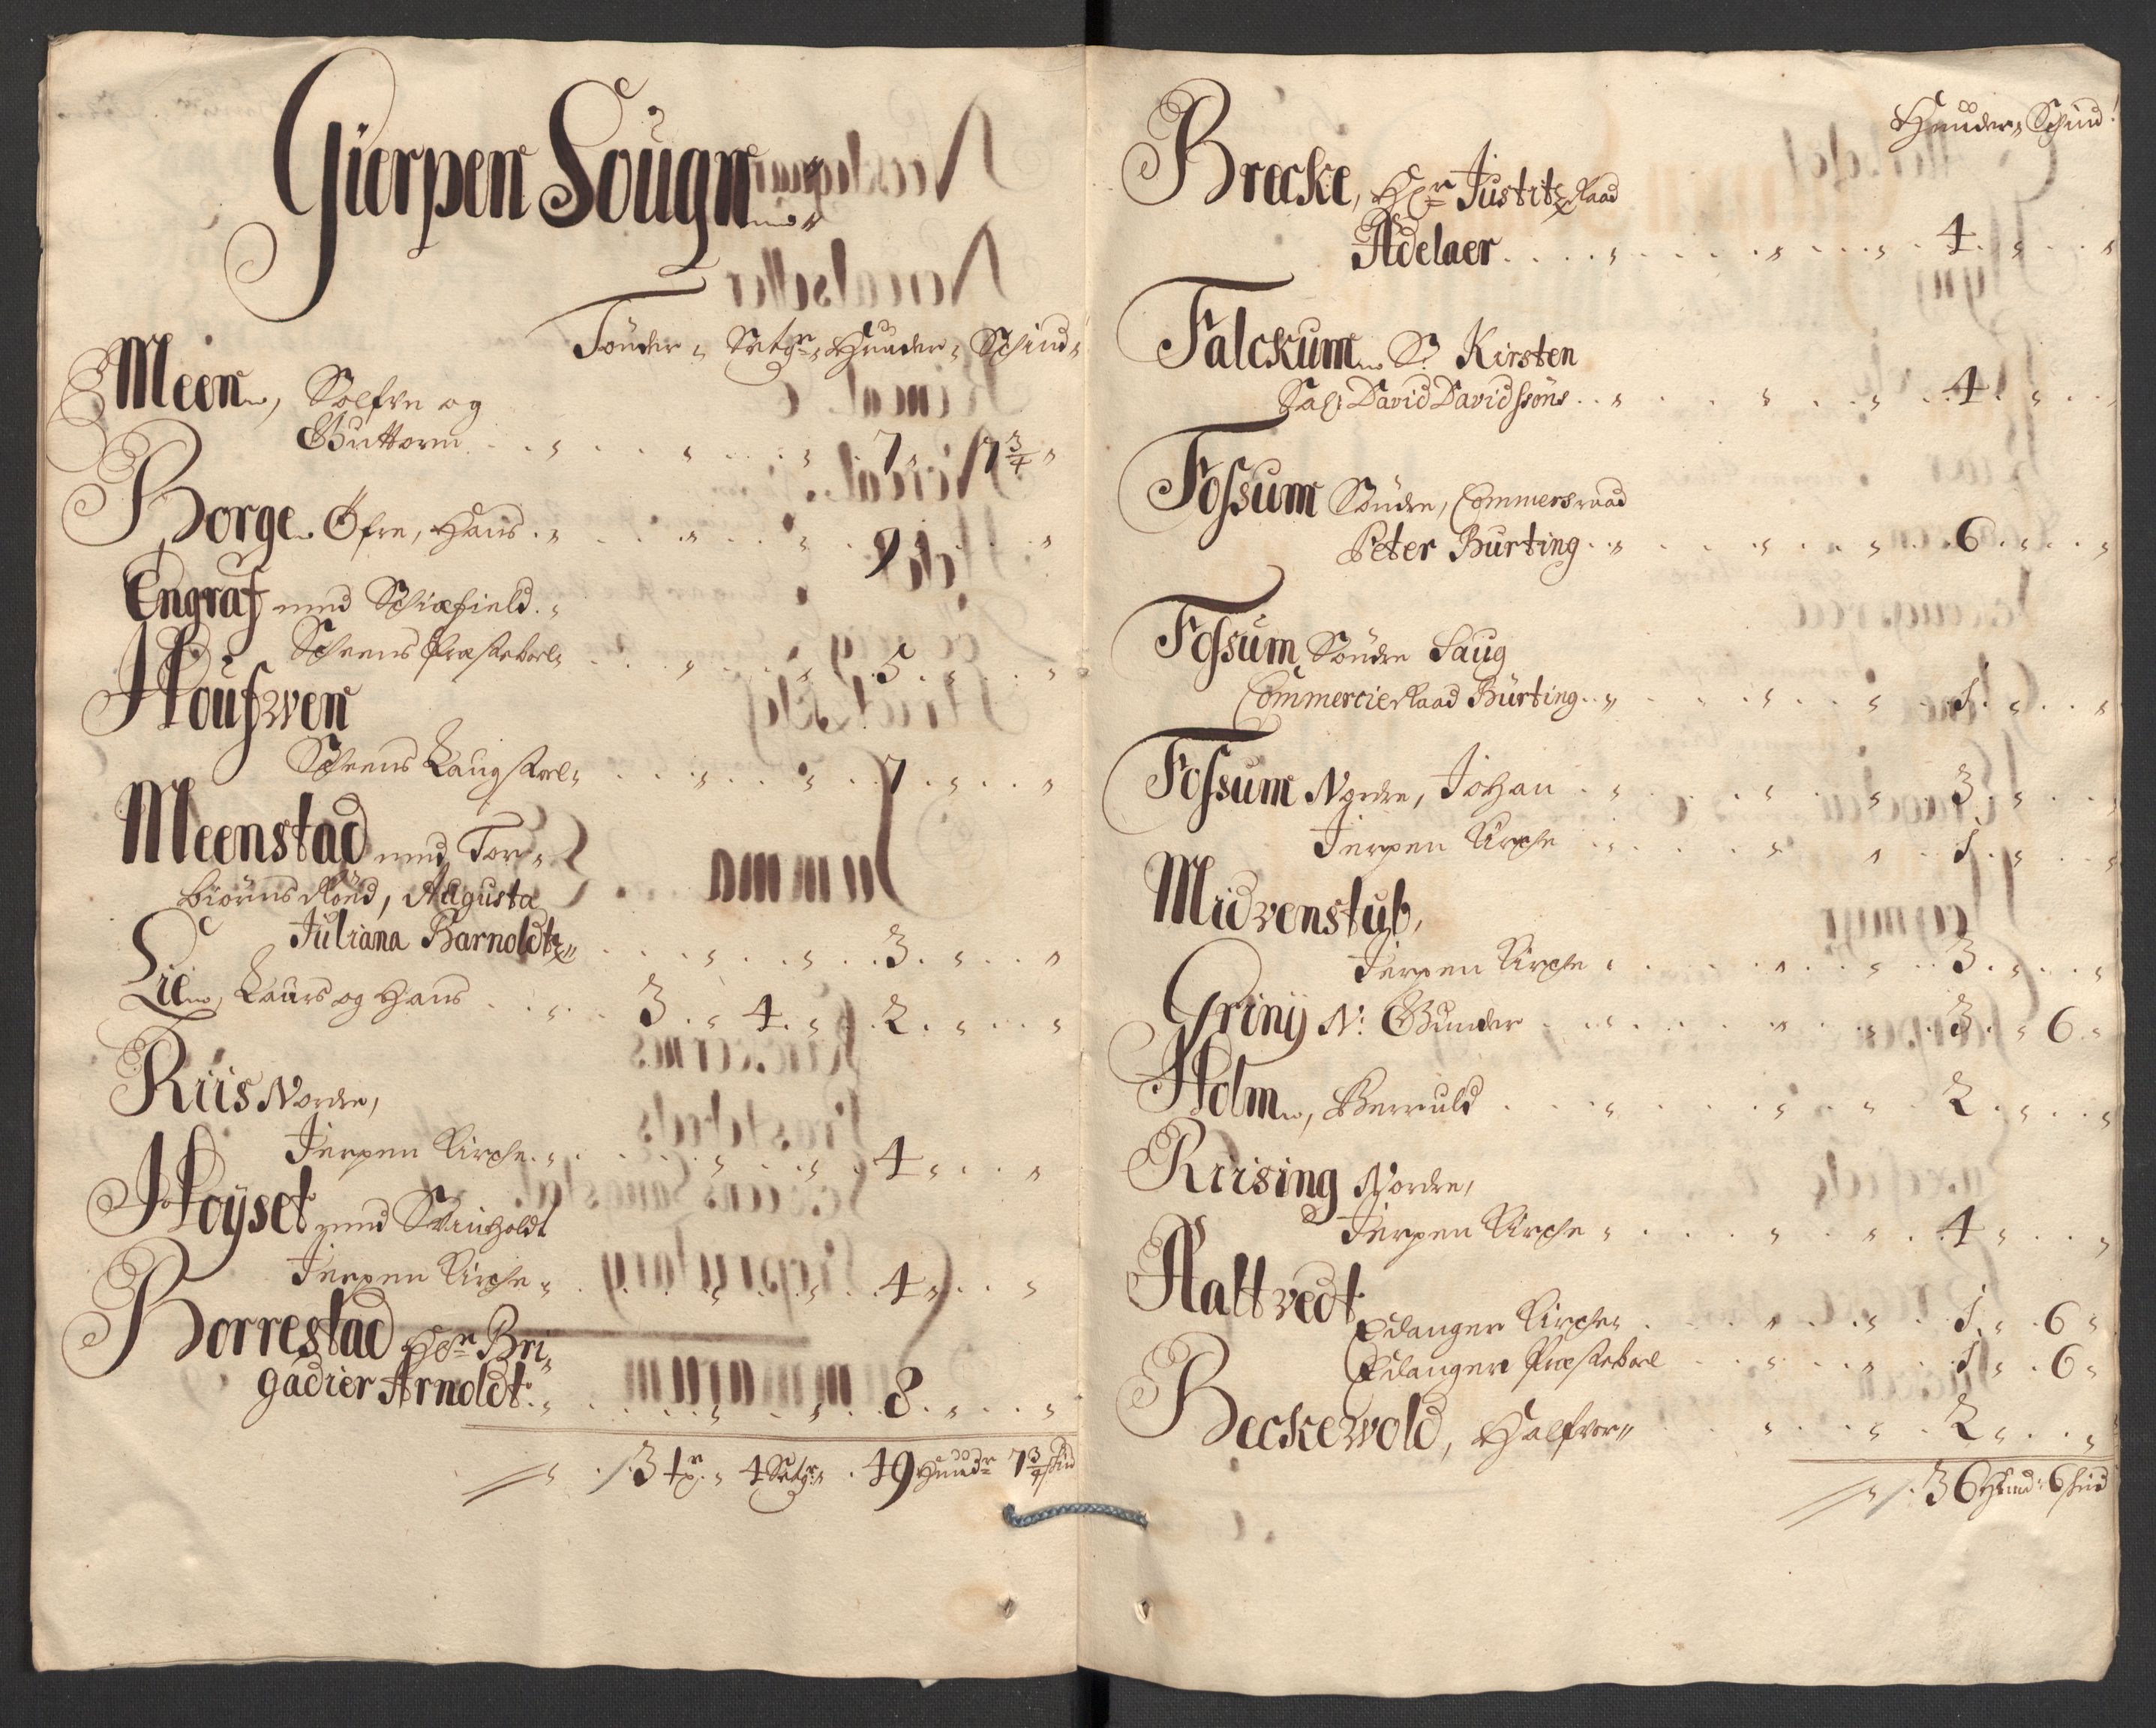 Gierpen Sougn
Tönder Setr Huuder Schind
Meen, Solfre og
Guttorm 7 7 3/4
Borge Öfre, Hans 9
Engraf med Schiefield
Scheens Præsteborl 5
Houfwen
Scheens Laugstoel 7
Meenstad med Tor-
biörns Rönd, Augusta
Juliana Barnoldtz 3
Lie, Laurs og Hans 3 4 2
Riis Nordre,
Jerpen Kirche 4
Höyset med Swinholdt
Jerpen Kirche 4
Borrestad Hr Bri-
gadier Arnoldt 8
/: 3 tr 4 Setr 49 Huudr 7 3/4 skind
Huuder Schind
Brecke, Hr Justitz Raad
Adelaer 4
Falckum S. Kirsten
Sal: David Davidssöns 4
Fossum Söndre, Commersraad
Peter Burting 6
Fossum Söndre Saug
Commercie Raad Bürting 1
Fossum Nordre, Johan 3
Jerpen Kirche 1
Midvenstub,
Jerpen Kirche 3
Griny N: Gunder 3 6
Holm, Berruld 2
Riising Nordre,
Jerpen Kirche 4
Haltvedt
Edanger Kirche 1 6
Edanger Præsteborl 1 6
Beckewold, Halfvor 2
/: 36 Huud: 6 skind